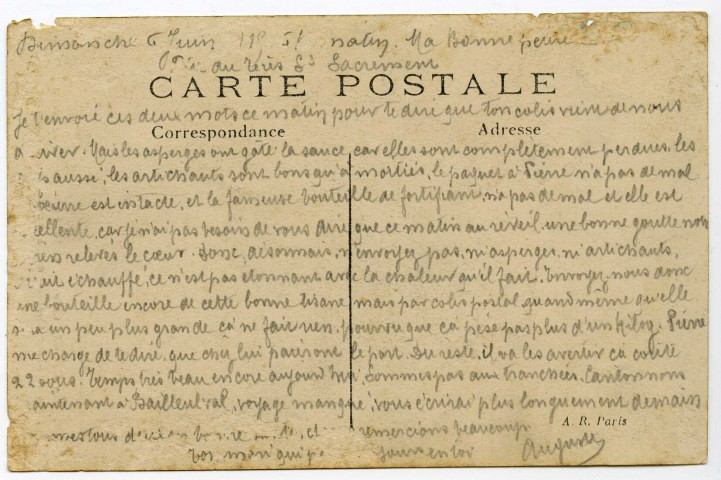 Dimanche 6 Juin 1915 matin. Ma Bonne petite
au Très St Sacrement
CARTE POSTALE
Je t'envoie ces deux mots ce matin pour te dire que ton colis vient de nous
Correspondance Adresse
arriver. Mais les asperges ont gâté la sauce, car elles sont complètement perdues. les
aussi, les artichauts sont bons qu'à moitiés, le paquet à Pierre n'a pas de mal
beurre est intacte, et la fameuse bouteille de fortifiant, n'a pas de mal et elle est
cellente, car je n'ai pas besoin de vous dire que ce matin au réveil une bonne goutte nous
relèves le cœur. Donc, désormais, n'envoyez pas, ni asperges, ni artichauts,
échauffé, ce n'est pas étonnant avec la chaleur qu'il fait. Envoyez-nous donc
une bouteille encore de cette bonne tisane mais par colis postal quand même qu'elle
un peu plus grande ça ne fait rien, pourvu que ça pèse pas plus d'un kilog. Pierre
me charge de te dire, que chez lui paieront le port. Du reste, il va les avertir ça coûte
22 sous. Temps très beau encore aujourd'hui. Sommes pas aux tranchées. Cantonnons
maintenant à Bailleulval, voyage manqué, vous écrirai plus longuement demain
remercions beaucoup
A. R. Paris
vos Auguste